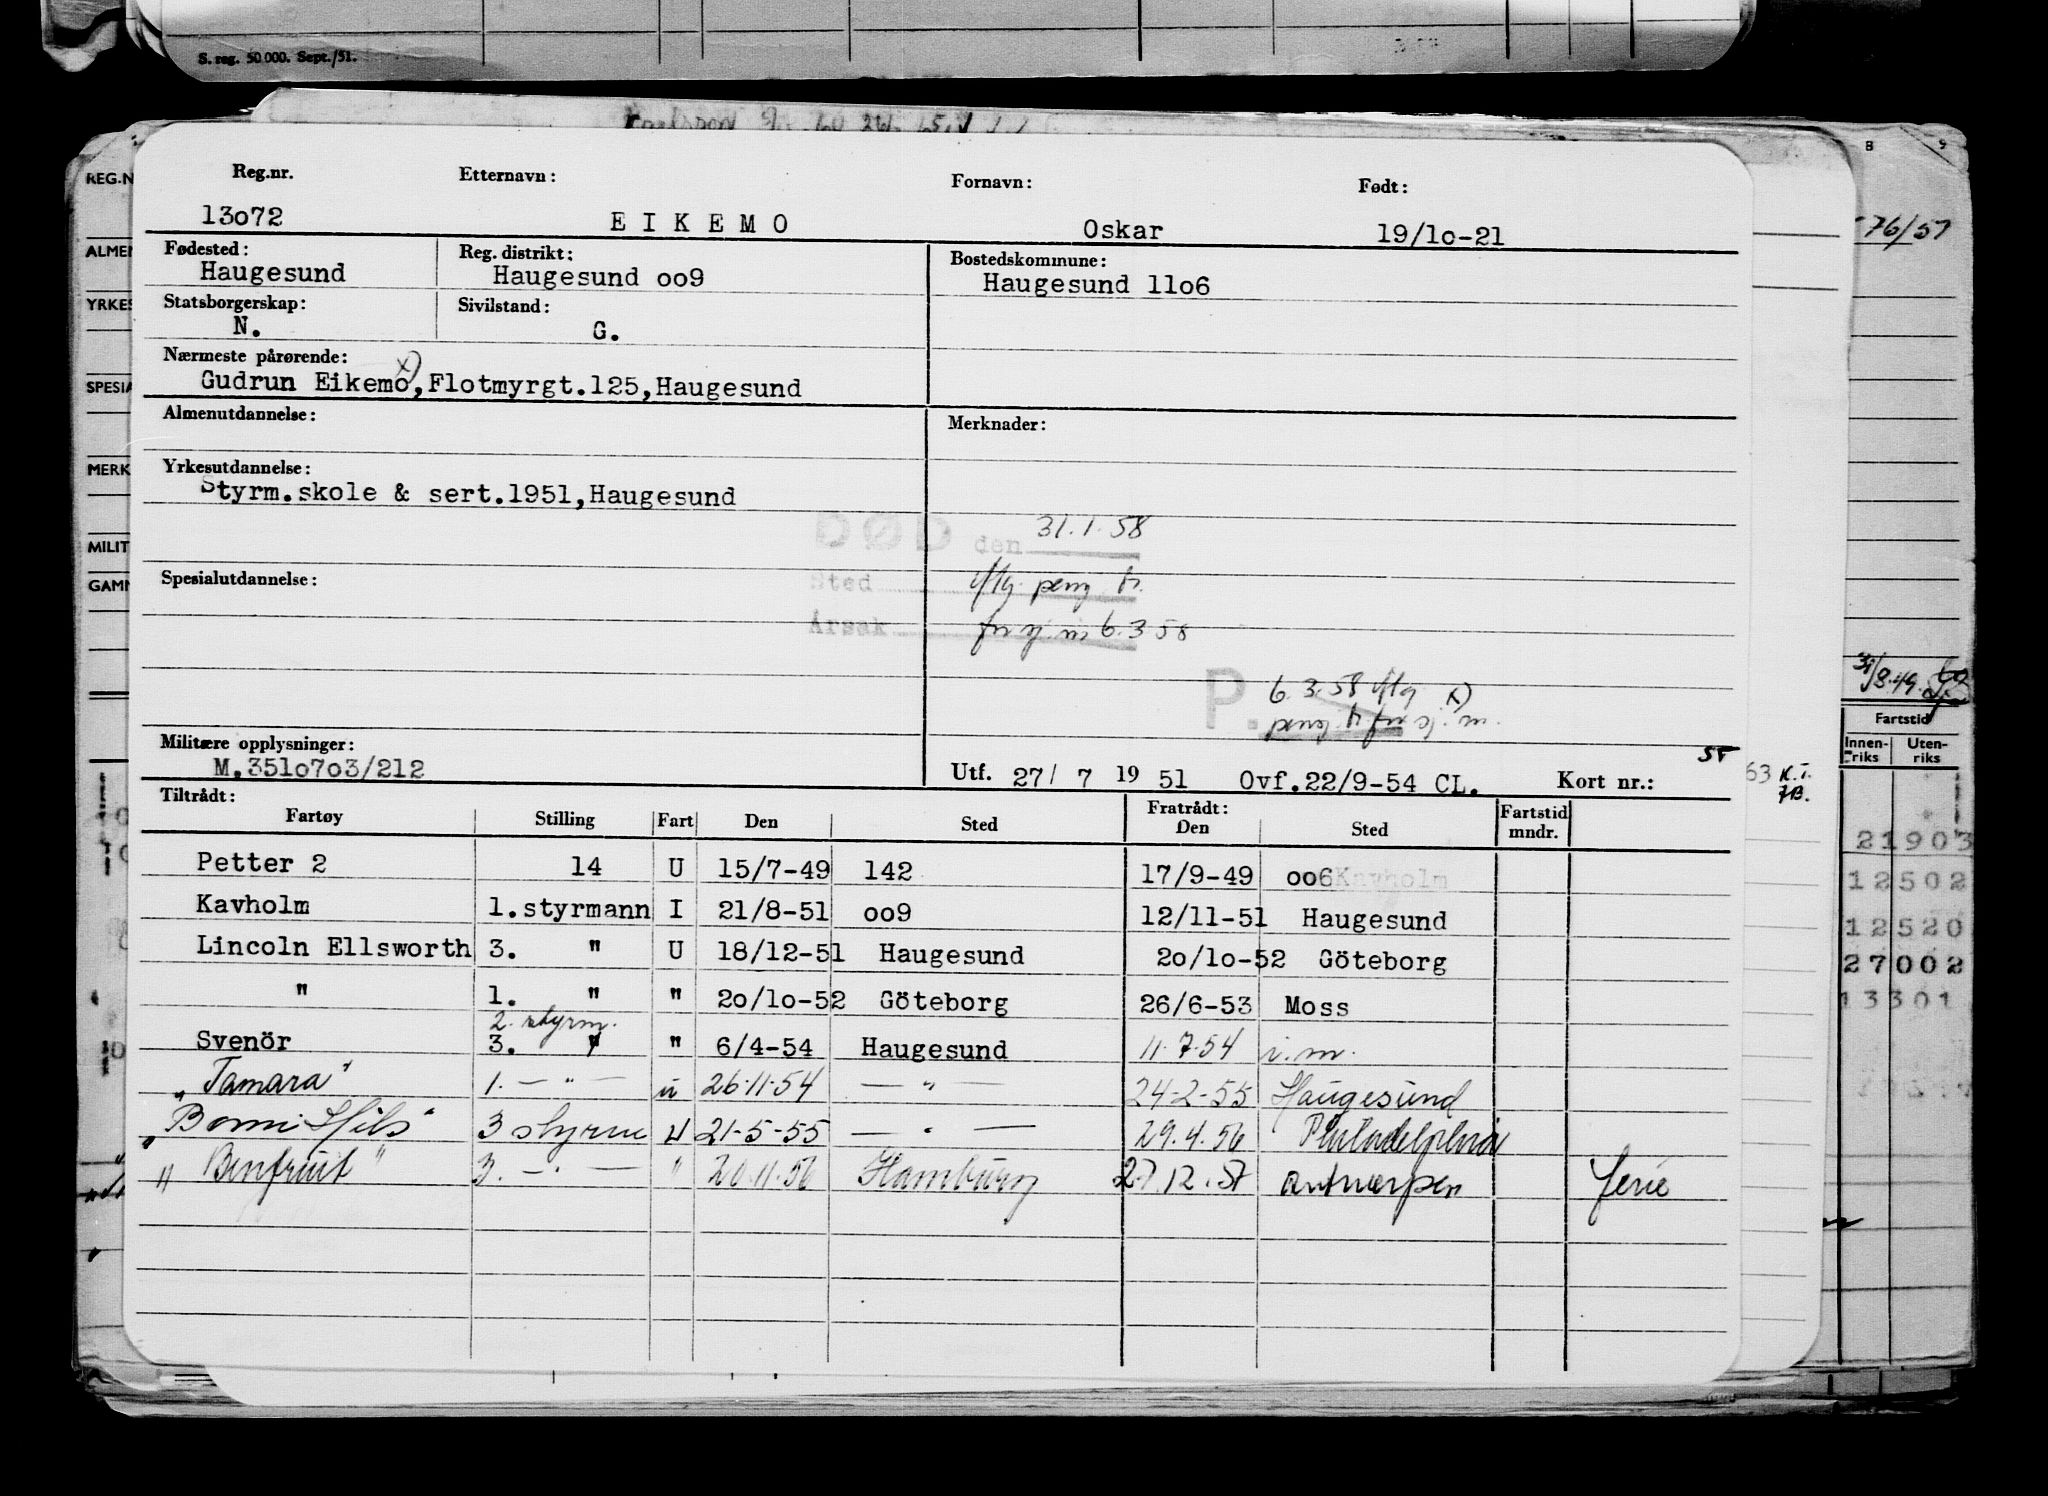 S. reg. 50 000. Sept./51.
REG.N
ALMEN
YRKES
SPESIA
MERK
MILIT
GAMN
8 9
76/57
31/8.49
Fartstid
Innen-riks Uten-riks
21903
12502
12520
27002
13301
63 K.T.
Reg.nr. Etternavn: Fornavn: Født:
13o72 E I K E M O Oskar 19/1o-21
Fødested: Reg. distrikt: Bostedskommune:
Haugesund Haugesund oo9 Haugesund 11o6
Statsborgerskap: Sivilstand:
N. G.
Nærmeste pårørende:
Gudrun Eikemo x),Flotmyrgt.125,Haugesund
Almenutdannelse: Merknader:
Yrkesutdannelse:
Styrm.skole & sert.1951,Haugesund
DØD den 31.1.58
Spesialutdannelse: Sted iflg peng tr.
Årsak fra sj. m 6.3.58
P. 6.3.58 iflg x)
peng tr fra sj. m.
Militære opplysninger:
M.351o7o3/212 Utf. 27/ 7 19 51 Ovf.22/9-54 CL. Kort nr.:
Tiltrådt: Fratrådt:
Fartøy Stilling Fart Den Sted Den Sted Fartstid mndr.
Petter 2 14 U 15/7-49 142 17/9-49 oo6 Kavholm
Kavholm 1.styrmann I 21/8-51 oo9 12/11-51 Haugesund
Lincoln Ellsworth 3. " U 18/12-51 Haugesund 2o/1o-52 Göteborg
" 1. " " 2o/1o-52 Göteborg 26/6-53 Moss
2. styrm.
Svenör 3. " " 6/4-54 Haugesund 11.7.54 i.m.
"Tamara" 1. — " — u 26.11.54 — " — 24-2-55 Haugesund
3 styrm U 21-5-55 — " — 29.4.56 Philadelphia
"Benfruit" 3. — " — " 20.11.56 Hamburg 27.12.57 Antwerpen ferie